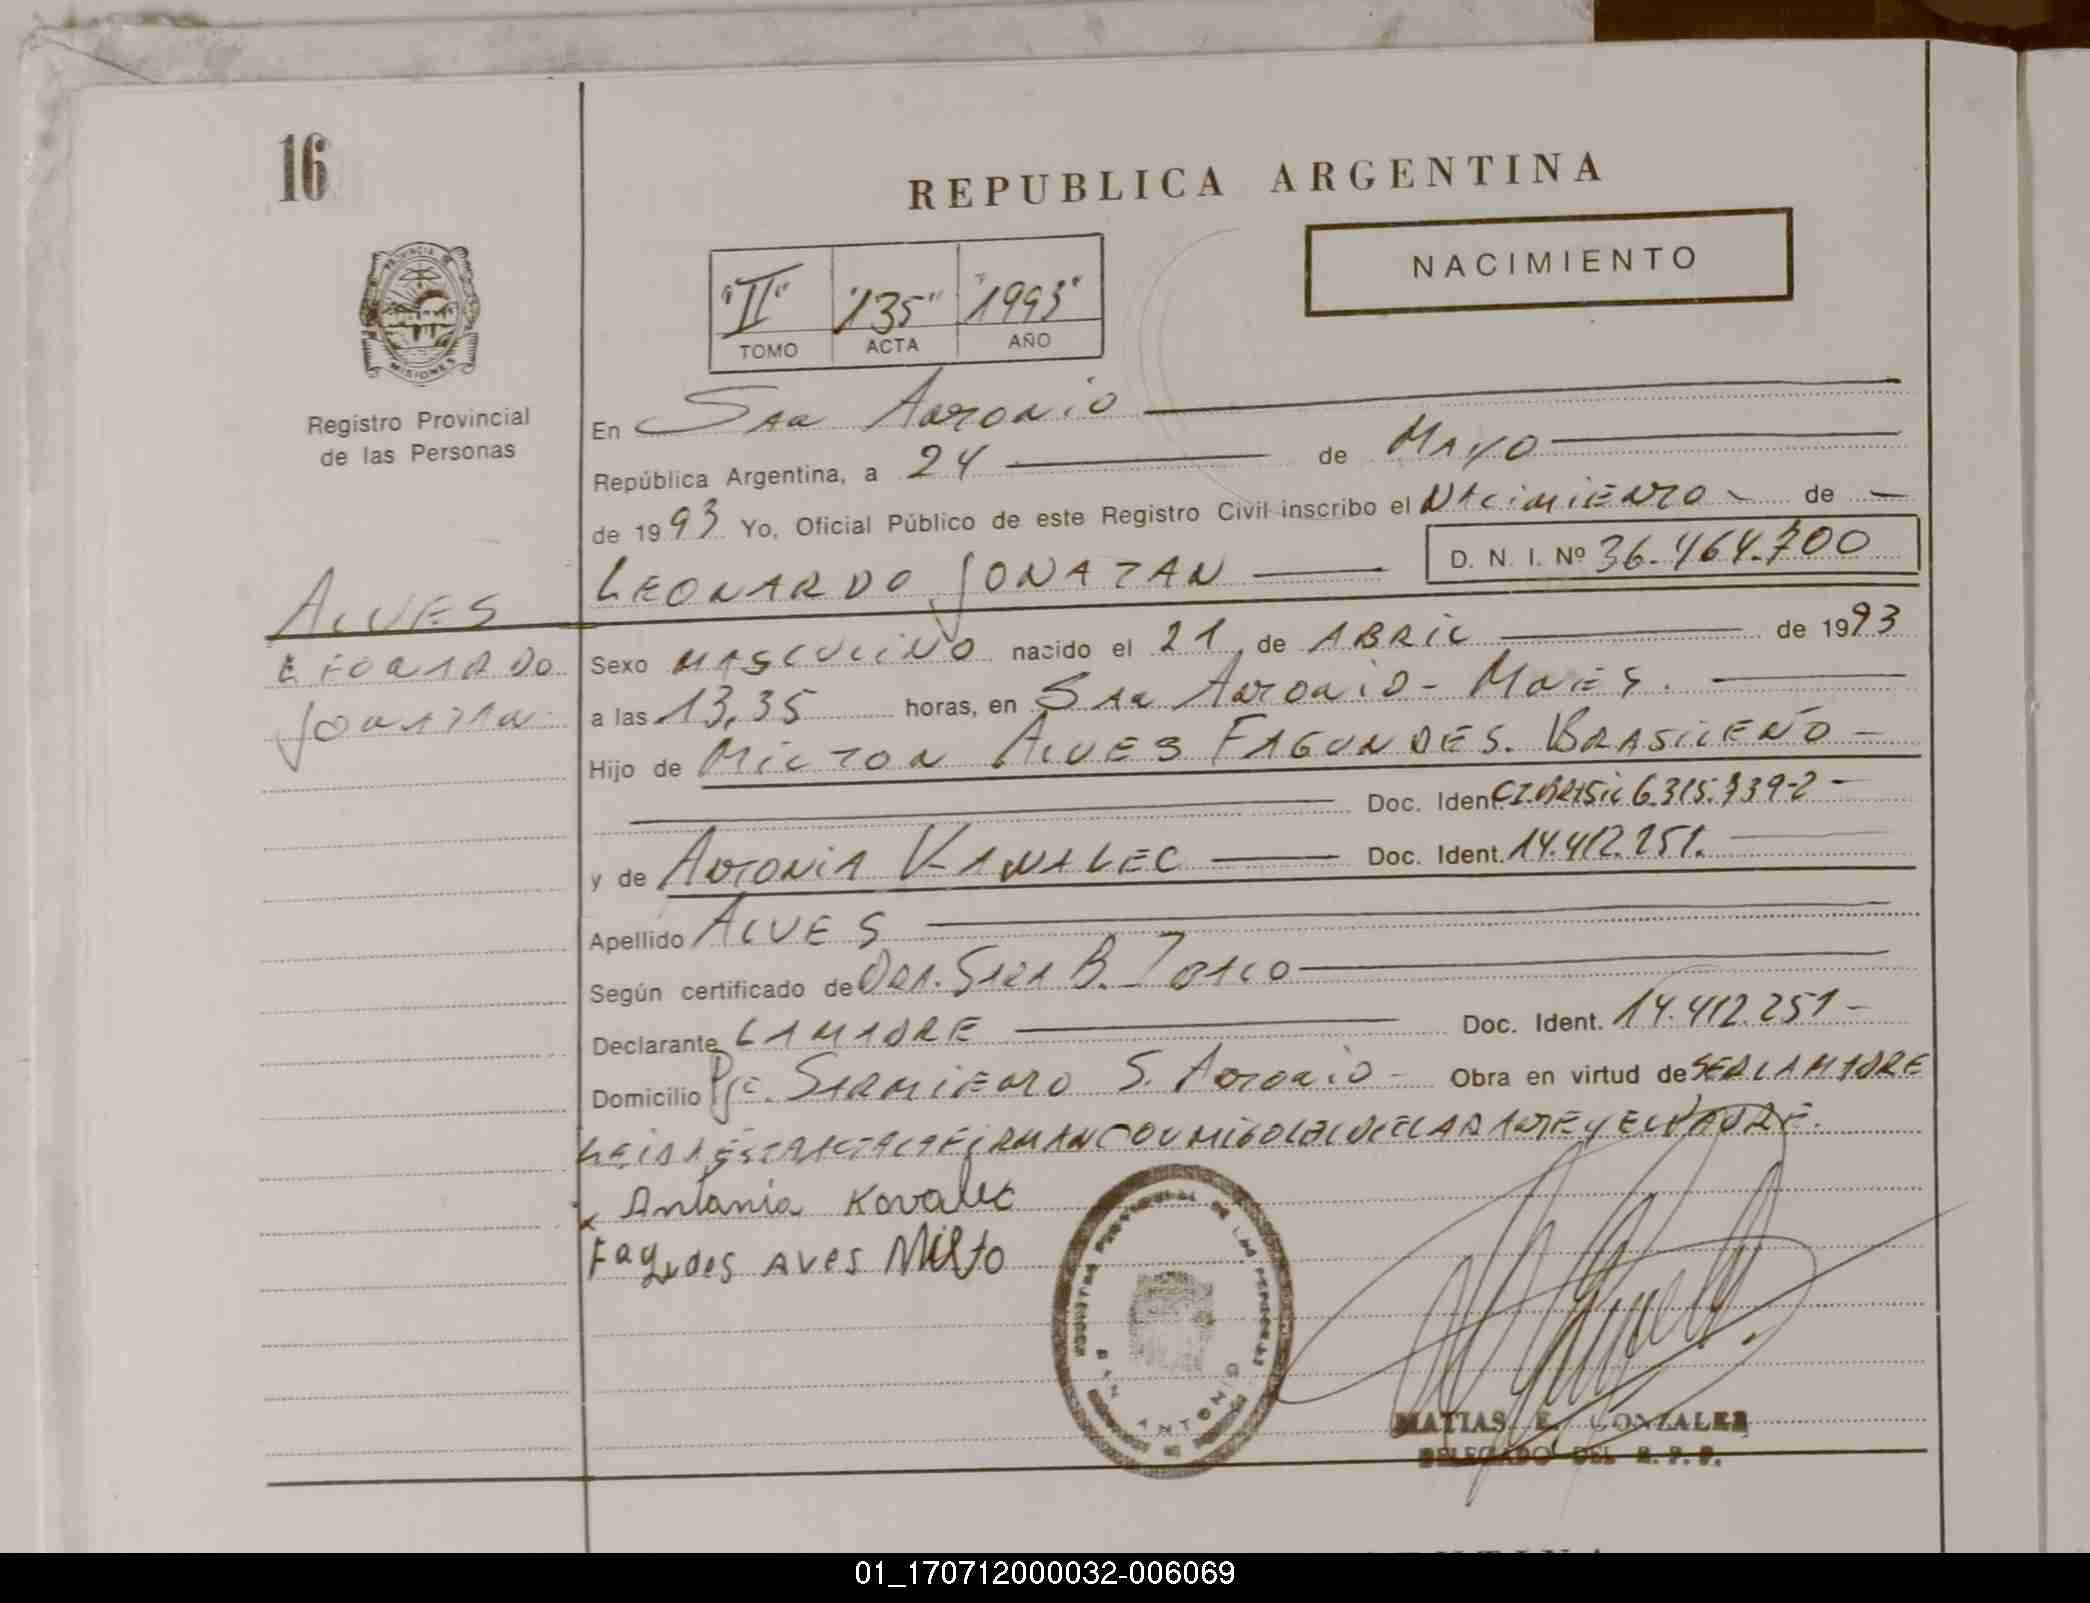 16
REPUBLICA ARGENTINA
NACIMIENTO
"II" "135" "1993"
TOMO ACTA AÑO
PROVINCIA DE
MISIONES
Registro Provincial
de las Personas
En San Antonio
República Argentina, a 24 de Mayo
de 1993 Yo, Oficial Público de este Registro Civil inscribo el NACIMIENTO - de -
LEONARDO JONATAN D. N. I. Nº 36.464.700
ALVES
LEONARDO
JONATAN
Sexo MASCULINO nacido el 21 de ABRIL de 1993
a las 13,35 horas, en San Antonio - Mnes.
Hijo de MILTON ALVES FAGUNDES. BRASILEÑO -
Doc. Ident. C.I. BRASIL 6.315.739-2 -
y de ANTONIA KAWALEC Doc. Ident. 14.412.251.
Apellido ALVES
Según certificado de DRA. SARA B.
Declarante LA MADRE Doc. Ident. 14.412.251 -
Domicilio Pje. SARMIENTO S. ANTONIO - Obra en virtud de SER LA MADRE
LEIDA ESTA ACTA LA FIRMAN CONMIGO LA DECLARANTE Y EL PADRE.
x Antonia Kovalec
Fagudes Aves Milto
REGISTRO PROVINCIAL DE LAS PERSONAS
SAN ANTONIO
MATIAS E. GONZALEZ
DELEGADO DEL R. P. P.
01_170712000032-006069